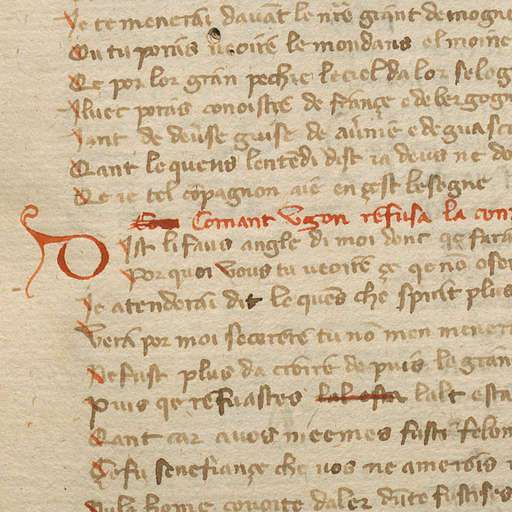 Je te menerai davāt le nr̄e grant demogne
Ou tu poras veoire le mondans el moine
Qe por lor gran pechie le ciel da lor se
Iluec poras conoistre de françe e de bergog
Iant de deverse guise de e de guasc
Qant le quens lentendi dist ia deus ne do
Qe ie tel cōpagnon aie en çest besogne
Comant Ugon refusa la con
Dist li faus angle di moi donc qe fara
Por quoi vous tu veoire çe qe nō ose
Ie atenderai dit le quēs che spirit plus
Vera por moi secorere tu nō men mener
Ne fust plus da croire de puis le gran
Puis qe refuastes lalt esta
Qant car avos meemes fustes felon
Çe fu senefiançe che vos ne amerois
Nuls home covoite daler dūte fustises